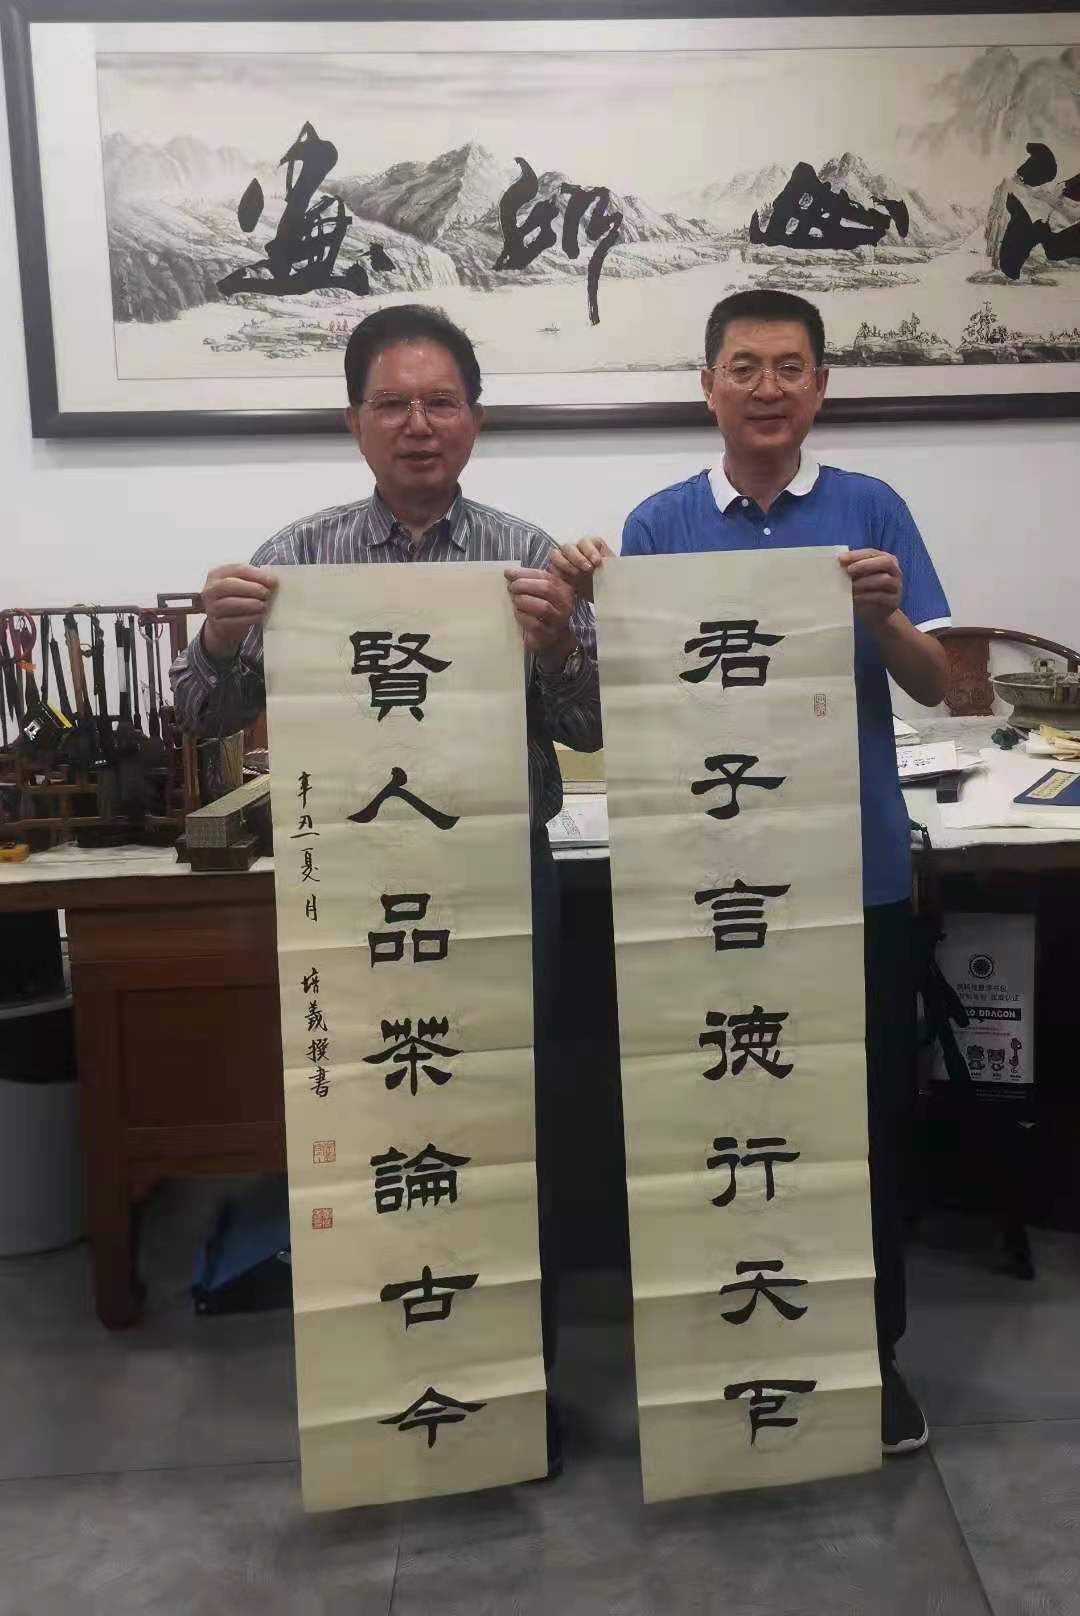 江山如畫
君子言德行天下
賢人品茶論古今
辛丑夏月 培義撰書
LO DRAGON